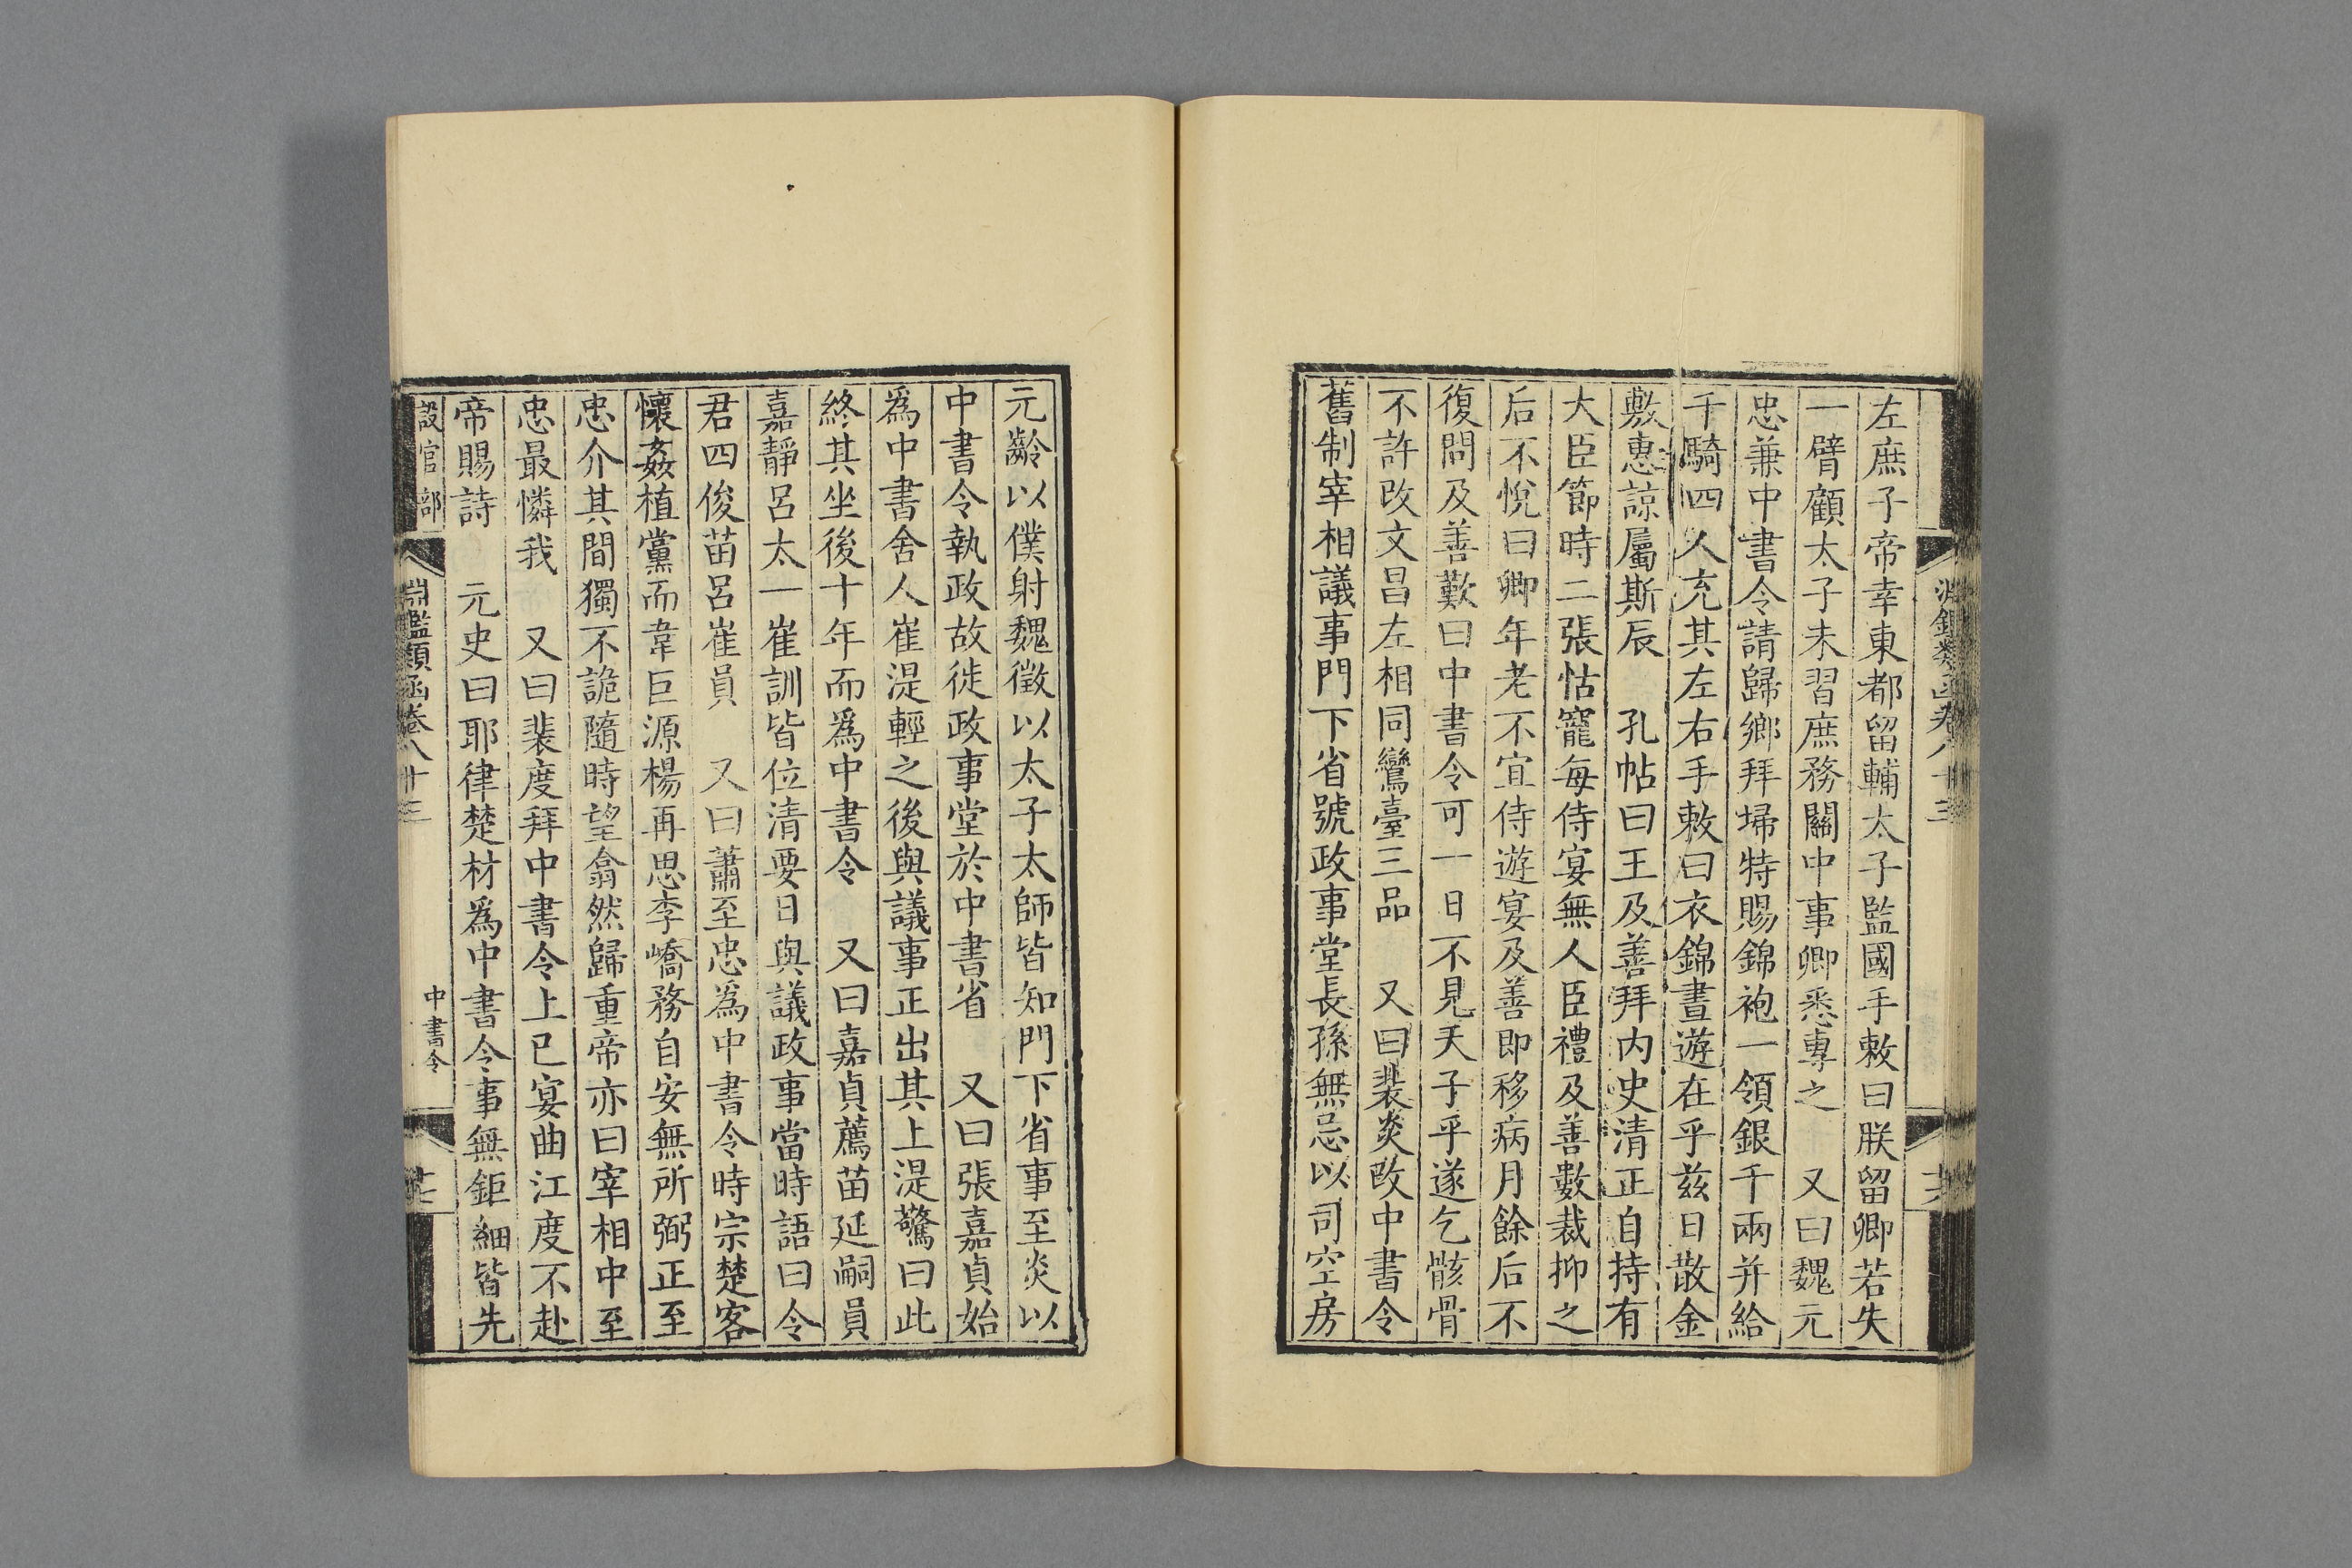 淵鑑類函卷八十三
左庶子帝幸東都留輔太子監國手敕曰朕留卿若失
一臂顧太子未習庶務關中事卿悉專之　又曰魏元
忠兼中書令請歸鄉拜埽特賜錦袍一領銀千兩并給
千騎四人充其左右手敕曰衣錦晝遊在乎茲日散金
敷惠諒屬斯辰　孔帖曰王及善拜內史清正自持有
大臣節時二張怙寵每侍宴無人臣禮及善數裁抑之
后不悅曰卿年老不宜侍遊宴及善即移病月餘后不
復問及善歎曰中書令可一日不見天子乎遂乞骸骨
不許改文昌左相同鸞臺三品　又曰裴炎改中書令
舊制宰相議事門下省號政事堂長孫無忌以司空房
元齡以僕射魏徵以太子太師皆知門下省事至炎以
中書令執政故徙政事堂於中書省　又曰張嘉貞始
為中書舍人崔湜輕之後與議事正出其上湜驚曰此
終其坐後十年而為中書令　又曰嘉貞薦苗延嗣員
嘉靜呂太一崔訓皆位清要日與議政事當時語曰令
君四俊苗呂崔員　又曰蕭至忠為中書令時宗楚客
懷姦植黨而韋巨源楊再思李嶠務自安無所弼正至
忠介其間獨不詭隨時望翕然歸重帝亦曰宰相中至
忠最憐我　又曰裴度拜中書令上巳宴曲江度不赴
帝賜詩　元史曰耶律楚材為中書令事無鉅細皆先
設官部　淵鑑類函卷八十三　中書令